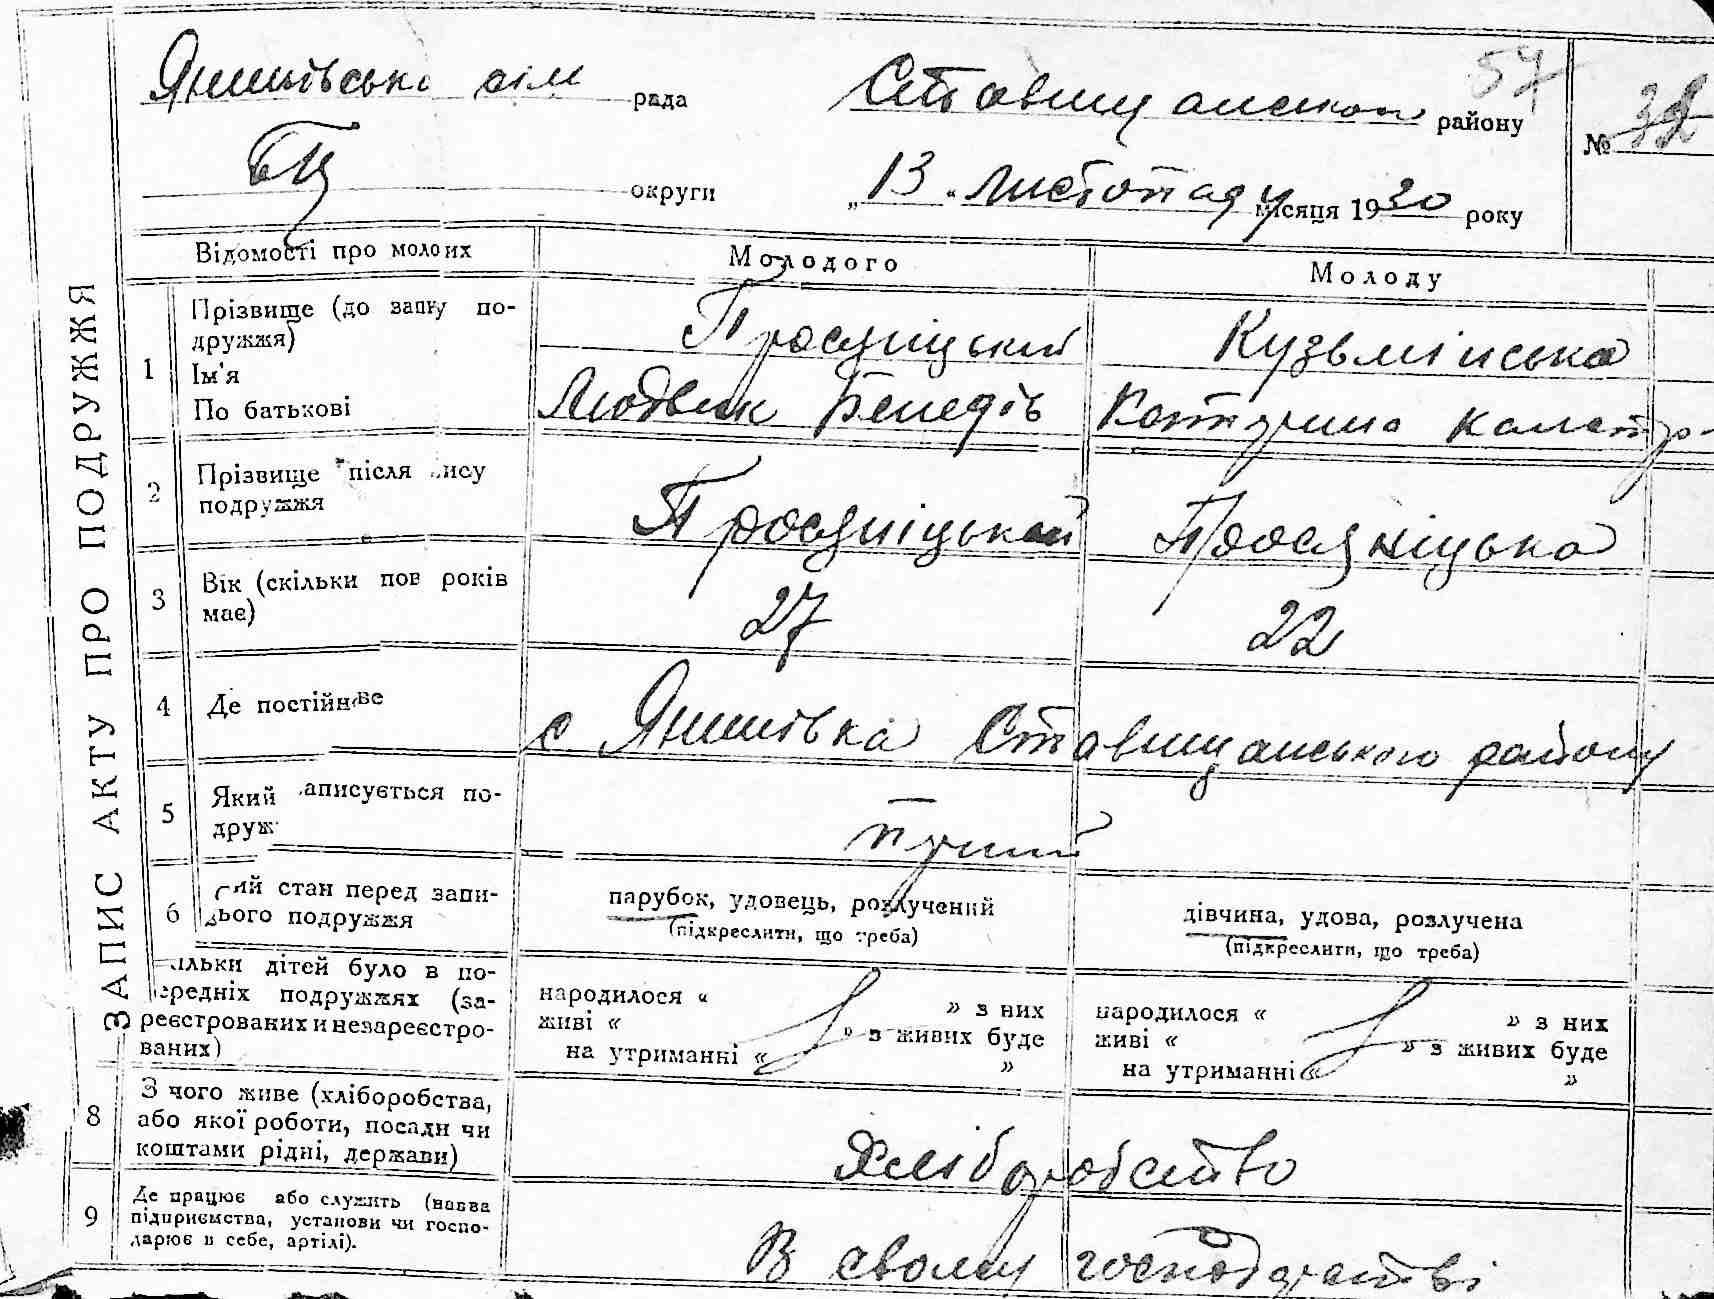 57
Янишівська сіль рада Ставищанськог району № 32
БЦ округи „13“ листопаду місяця 1930 року
ЗАПИС АКТУ ПРО ПОДРУЖЖЯ
Відомості про молоих Молодого Молоду
1 Прізвище (до запу по-
дружжя) Просяніцький Кузьмінська
Ім'я
По батькові Людвик Бенедів Катерина
2 Прізвище після ису
подружжя Просяніцький Просяніцька
3 Вік (скільки пов років
має) 27 22
4 Де постійн ве с Янишівка Ставищанського району
5 Який аписується по-
друж перший
6 ий стан перед запи-
ього подружжя
парубок, удовець, розлучений дівчина, удова, розлучена
(підкреслити, що треба) (підкреслити, що треба)
ільки дітей було в по-
ередніх подружжях (за-
реєстрованих и незареєстро-
ваних)
народилося “ ” з них народилося “ ” з них
живі “ ” з живих буде живі “ ” з живих буде
на утриманні “ ” на утриманні “ ”
8 З чого живе (хліборобства,
або якої роботи, посади чи
коштами рідні, держави) Хліборобство
9 Де працює або служить (назва
підприємства, установи чи госпо-
дарює в себе, артілі). В свому господарстві